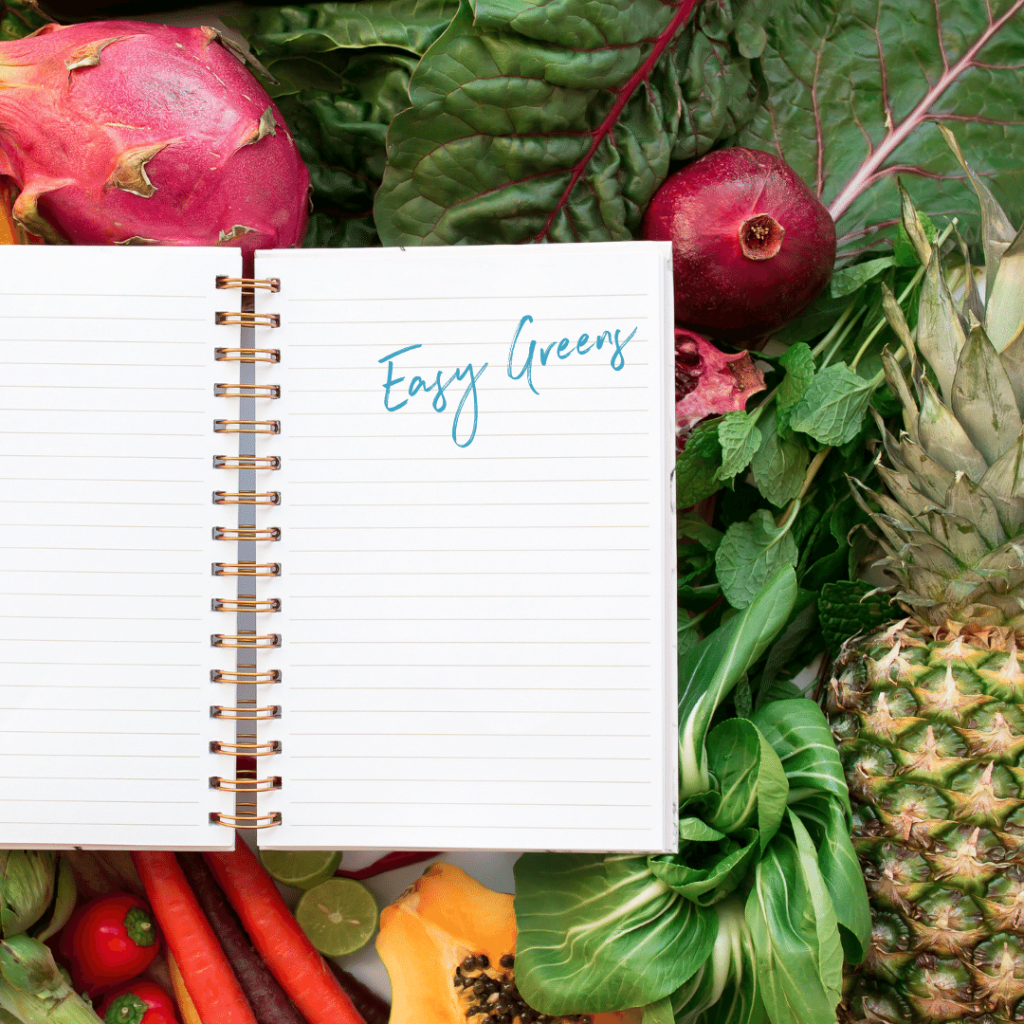 Easy Greens